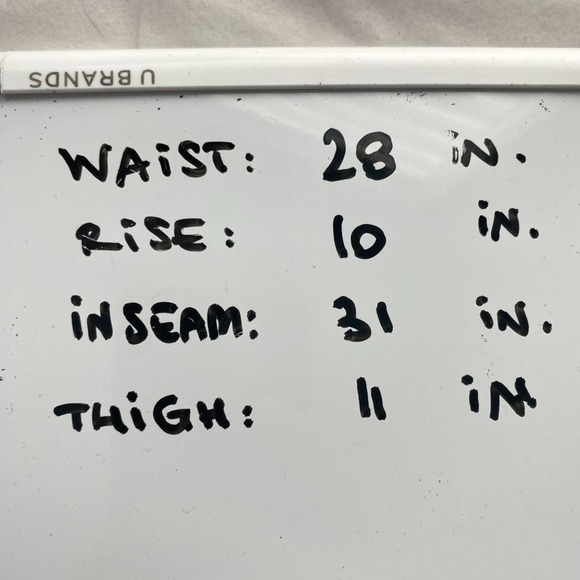 U BRANDS
WAiST: 28 iN.
RiSE: 10 iN.
iNSEAM: 31 iN.
THiGH: 11 iN